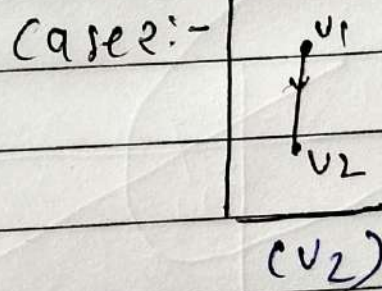 Case2:-
V1
V2
(V2)